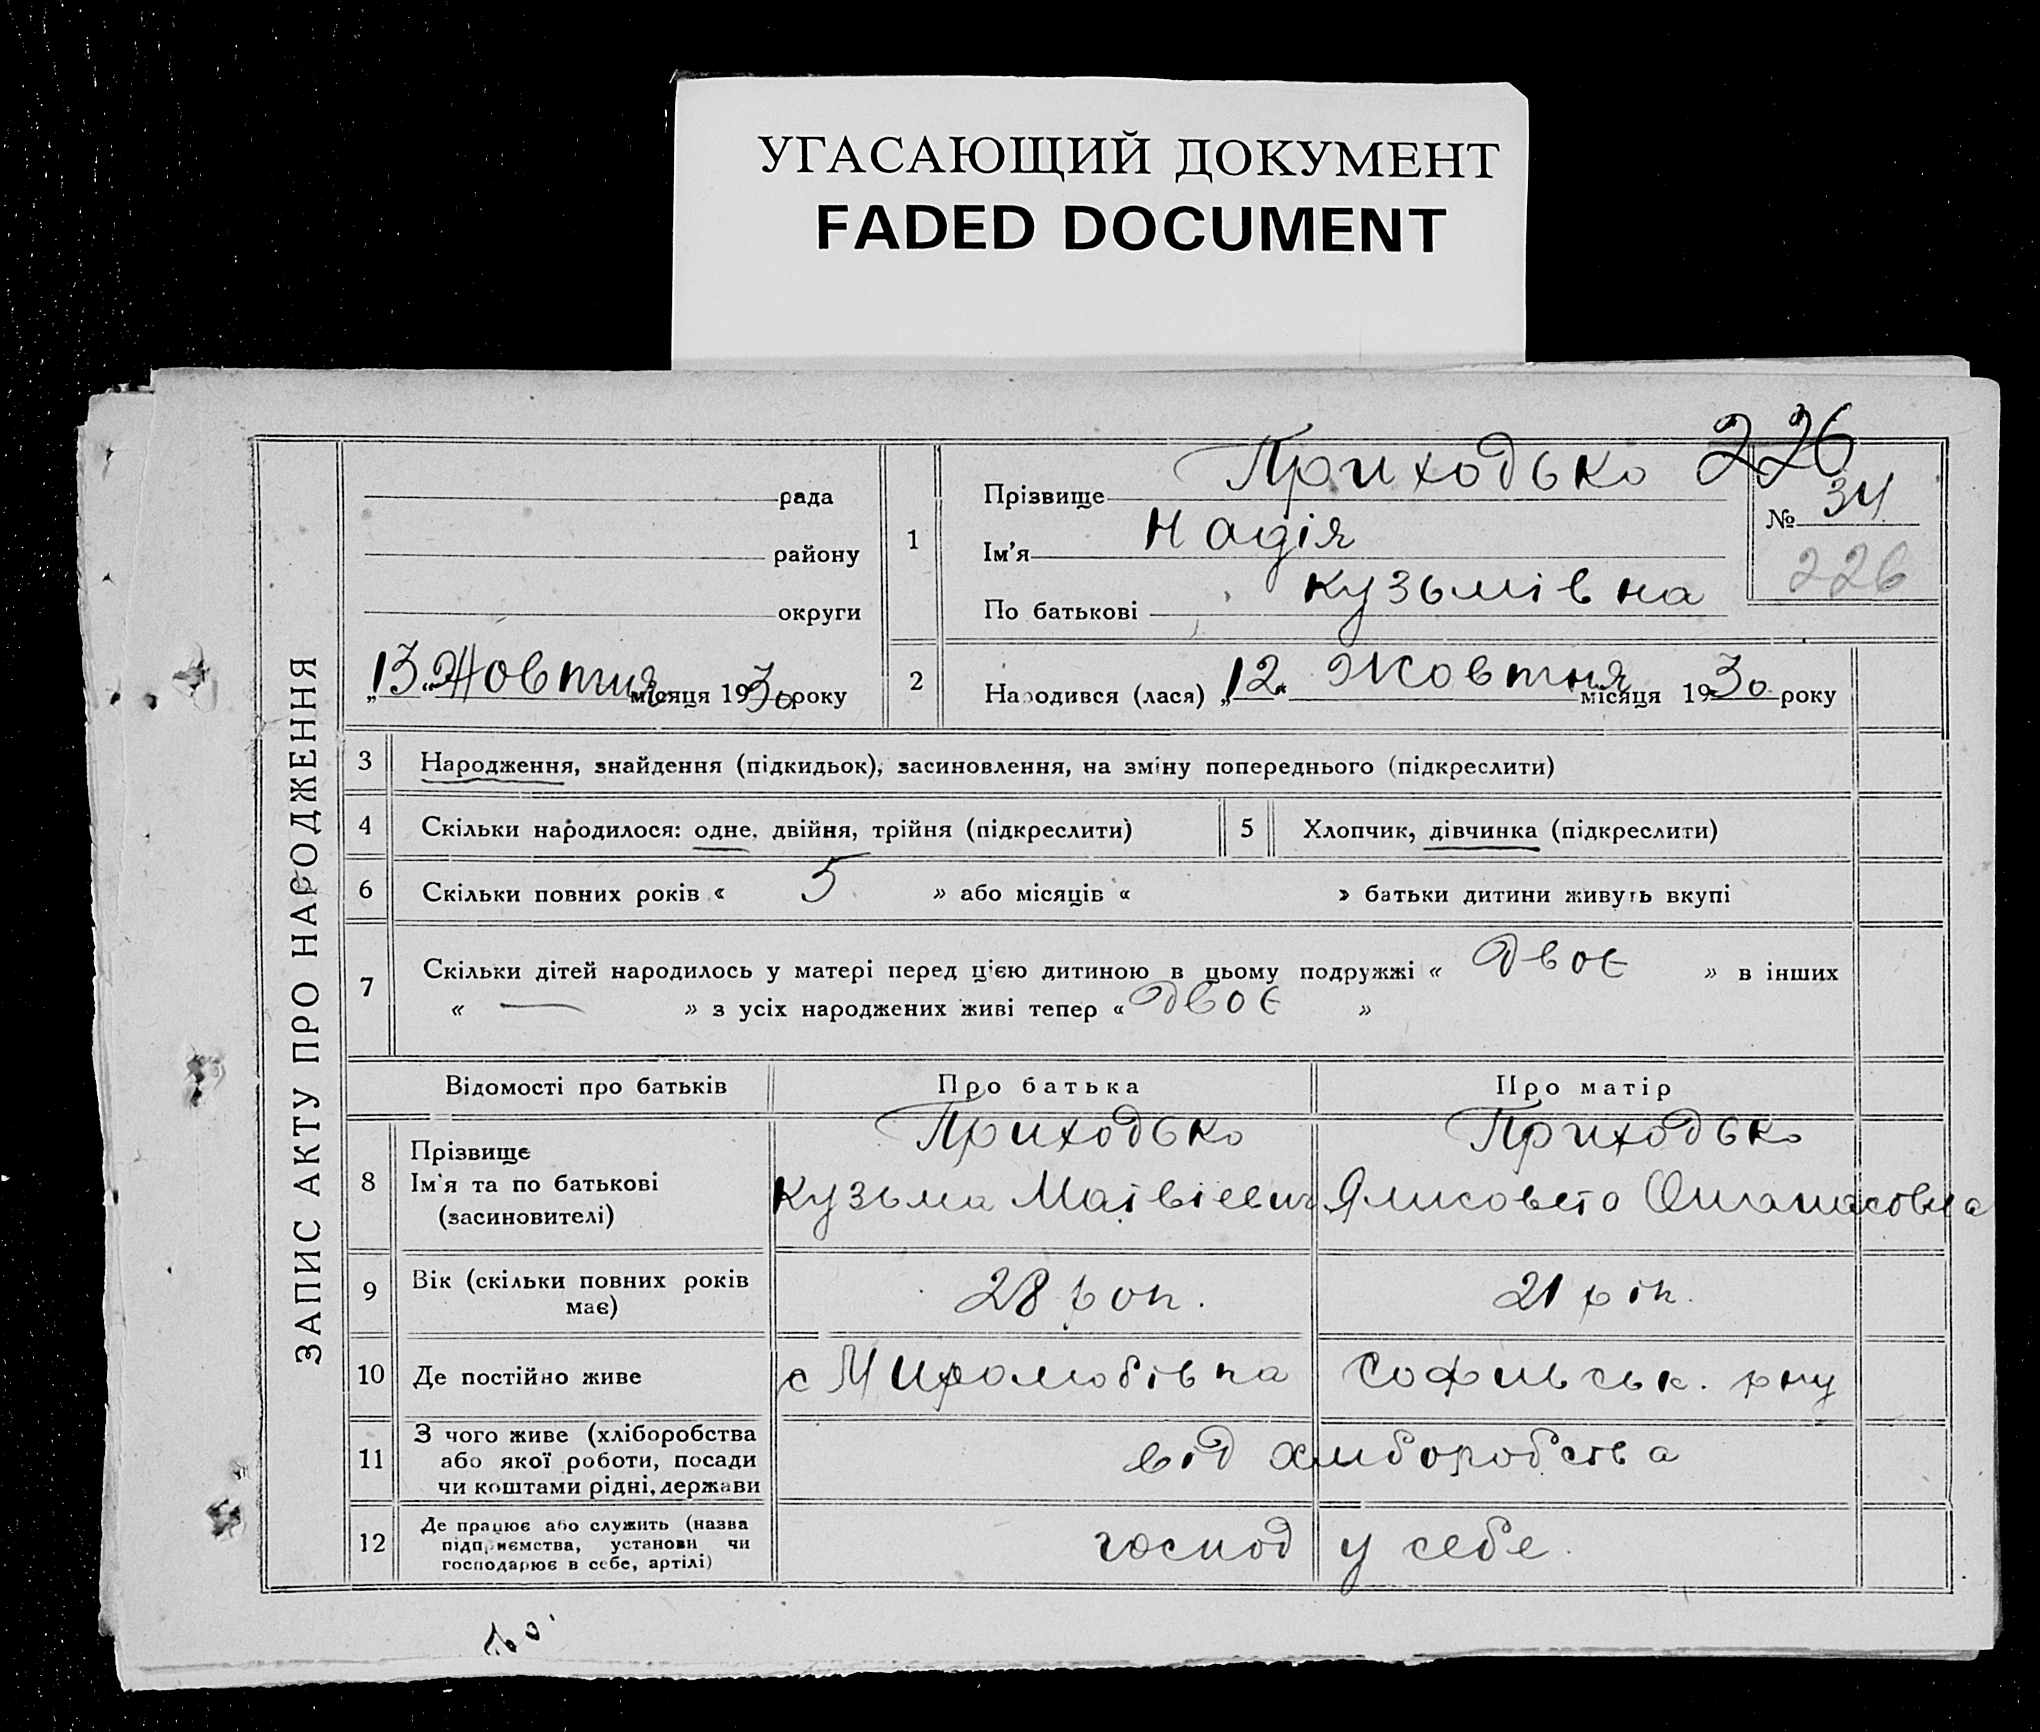 УГАСАЮЩИЙ ДОКУМЕНТ
FADED DOCUMENT
226
ЗАПИС АКТУ ПРО НАРОДЖЕННЯ
рада
району
округи
„13“ Жовтня місяця 1930 року
1
Прізвище Приходько
Ім'я Надія
По батькові Кузьмівна
№ 34
226
2 Народився (лася) „12“ Жовтня місяця 1930 року
3 Народження, знайдення (підкидьок), засиновлення, на зміну попереднього (підкреслити)
4 Скільки народилося: одне, двійня, трійня (підкреслити) 5 Хлопчик, дівчинка (підкреслити)
6 Скільки повних років « 5 » або місяців « » батьки дитини живуть вкупі
7 Скільки дітей народилось у матері перед цією дитиною в цьому подружжі « двоє » в інших
« — » з усіх народжених живі тепер « двоє »
Відомості про батьків Про батька Про матір
8 Прізвище Приходько Приходько
Ім'я та по батькові Кузьма Матвієвич Ялисовета Опанасовна
(засиновителі)
9 Вік (скільки повних років має) 28 рок. 21 рік.
10 Де постійно живе с Миролюбівка Софиьськ. рну
11 З чого живе (хліборобства
або якої роботи, посади
чи коштами рідні, держави від хлиборобства
12 Де працює або служить (назва
підприємства, установи чи
господарює в себе, артілі) господ у себе.